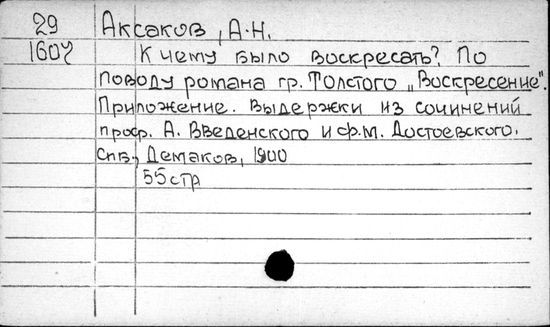 29 Аксаков, А.Н.
1607 К чему было воскресать? По
поводу романа гр. Толстого „Воскресение".
Приложение. Выдержки из сочинений
проф. А. Введенского и Ф.М. Достоевского.
Спб., Демаков, 1900
55 стр